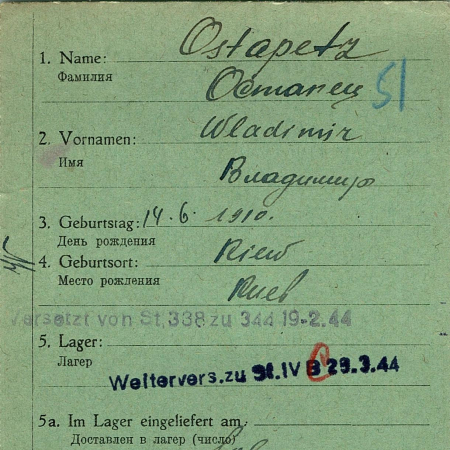 Ostapetz
1. Name:
Фамилия
Остапец
51
Wladimir
2. Vornamen:
Имя
Владимир
3. Geburtstag: 14. 6. 1910.
День рождения
4. Geburtsort: Kiew
Место рождения
Киев
Versetzt von St. 338 zu 344 19-2.44
5. Lager:
Лагер
Weitervers. zu St. IV B 29.3.44
5a. Im Lager eingeliefert am
Доставлен в лагер (число)